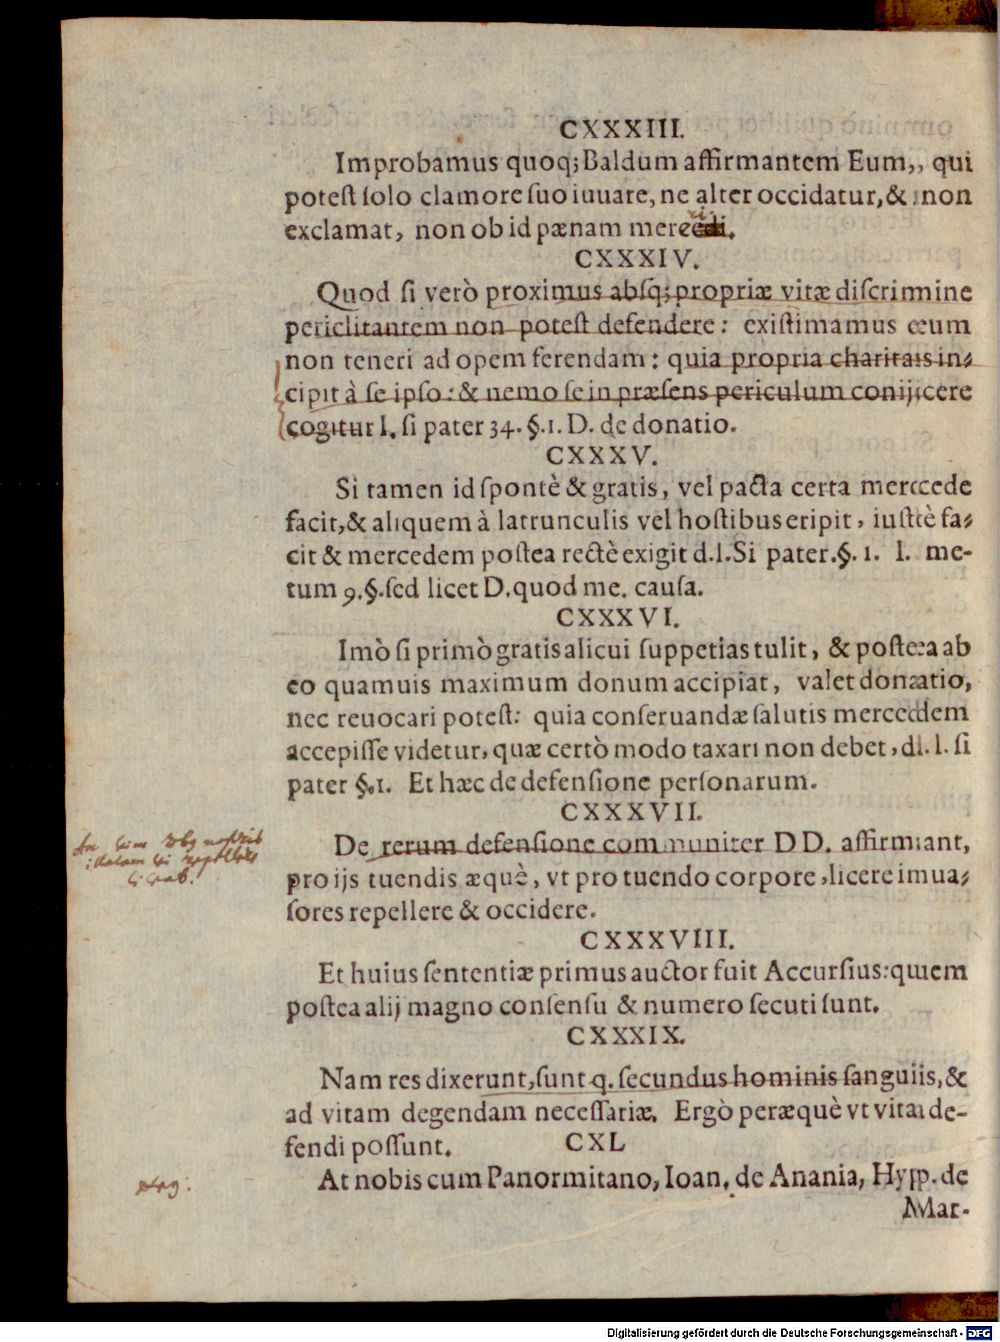 CXXXIII.
Improbamus quoq; Baldum affirmantem Eum, qui
potest solo clamore suo iuuare, ne alter occidatur, & non
exclamat, non ob id pænam mereri.
CXXXIV.
Quod si verò proximus absq; propriæ vitæ discrimine
periclitantem non potest defendere: existimamus eum
non teneri ad opem ferendam: quia propria charitas in-
cipit à se ipso: & nemo se in præsens periculum conijcere
cogitur l. si pater 34. §. 1. D. de donatio.
CXXXV.
Si tamen id spontè & gratis, vel pacta certa mercede
facit, & aliquem à latrunculis vel hostibus eripit, iustè fa-
cit & mercedem postea rectè exigit d. l. Si pater. §. 1. l. me-
tum 9. §. sed licet D. quod me. causa.
CXXXVI.
Imò si primò gratis alicui suppetias tulit, & postea ab
eo quamuis maximum donum accipiat, valet donatio,
nec reuocari potest: quia conseruandæ salutis mercedem
accepisse videtur, quæ certò modo taxari non debet, d. l. si
pater §. 1. Et hæc de defensione personarum.
CXXXVII.
De rerum defensione communiter DD. affirmant,
pro ijs tuendis æquè, vt pro tuendo corpore, licere inua-
sores repellere & occidere.
CXXXVIII.
Et huius sententiæ primus auctor fuit Accursius: quem
postea alij magno consensu & numero secuti sunt.
CXXXIX.
Nam res dixerunt, sunt q. secundus hominis sanguis, &
ad vitam degendam necessariæ. Ergò peræquè vt vita de-
fendi possunt.
CXL
At nobis cum Panormitano, Ioan. de Anania, Hyp. de
Mar-
Digitalisierung gefördert durch die Deutsche Forschungsgemeinschaft - DFG